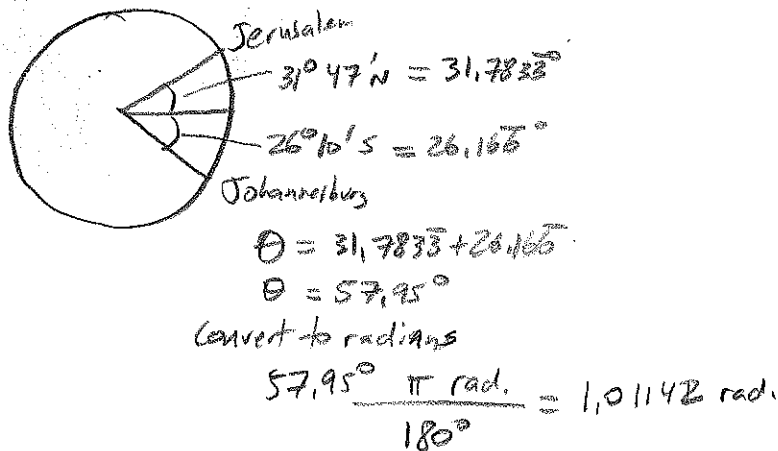 Jerusalem
31° 47' N = 31,7833̅°
26° 10' S = 26,166̅°
Johannesburg
θ = 31,7833̅ + 26,166̅
θ = 57,95°
Convert to radians
57,95° π rad. / 180° = 1,01142 rad.